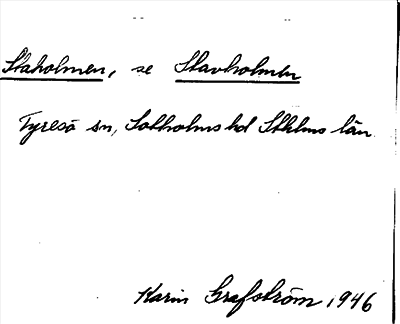 Staholmen, se Stavholmen
Tyresö sn, Sotholms hd Sthlms län
Karin Grafström 1946